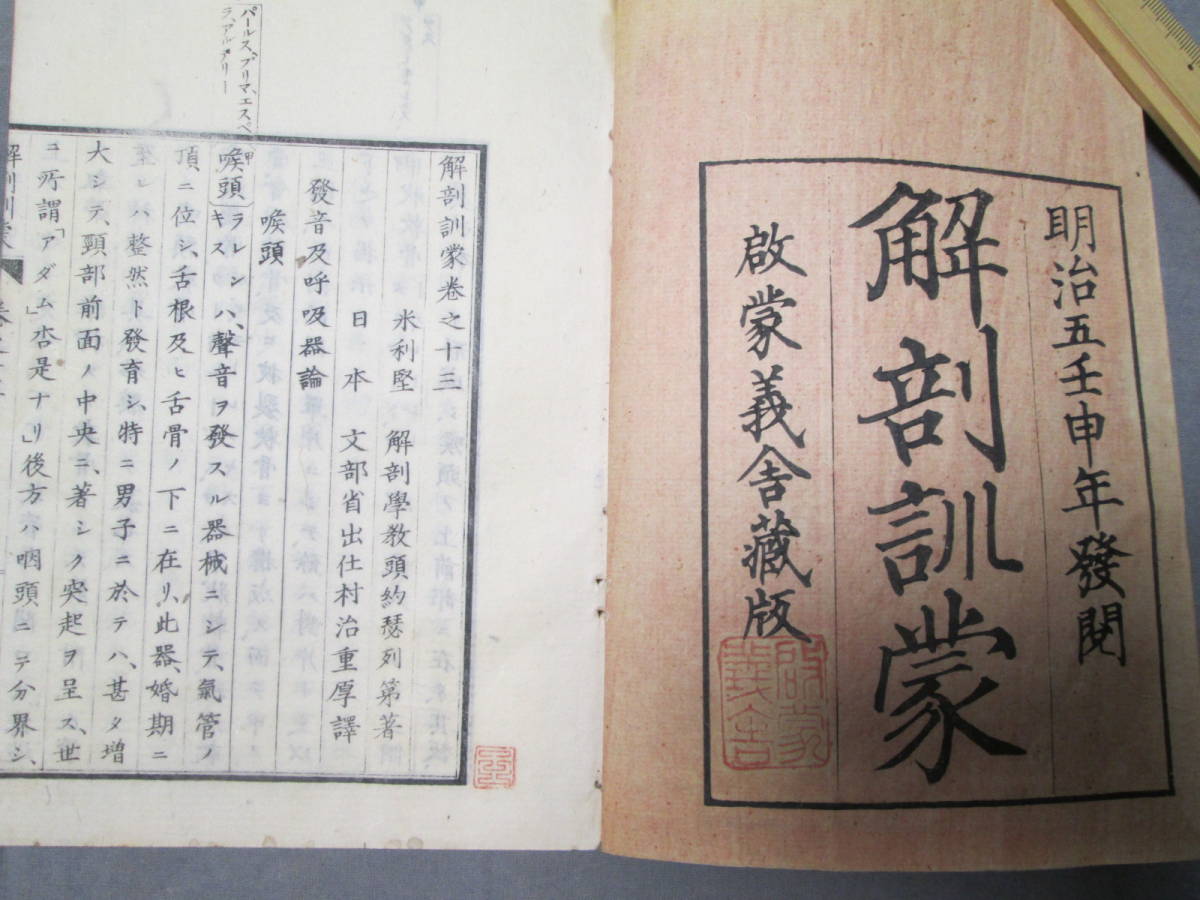 明治五壬申年發閱
解剖訓蒙
啟蒙義舍藏版
啟蒙義舍
解剖訓蒙卷之十三
米利堅 解剖學教頭約瑟列第著
日本 文部省出仕村治重厚譯
發音及呼吸器論
喉頭
パールス、プリマ、エスペ
ラ、アルテリー
甲
喉頭 ラレンキス ハ、聲音ヲ發スル器械ニシテ、氣管ノ
頂ニ位シ、舌根及ヒ舌骨ノ下ニ在リ、此器、婚期ニ
至レハ整然ト發育シ、特ニ男子ニ於テハ、甚タ増
大シテ、頸部前面ノ中央ニ、著シク突起ヲ呈ス、世
ニ所謂「アダム」杏是ナリ、後方ハ咽頭ニテ分界シ、
解剖訓蒙